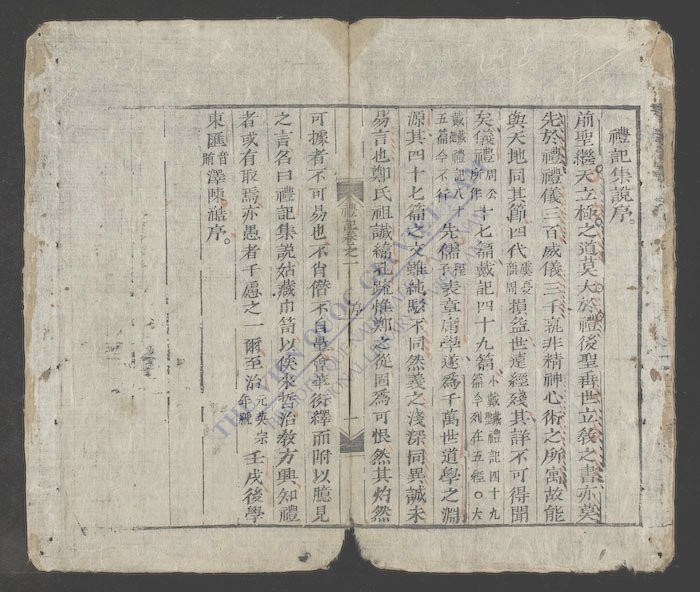 禮記集說序。
前聖繼天立極之道莫大於禮後聖垂世立教之書亦莫
先於禮禮儀三百威儀三千孰非精神心術之所寓故能
與天地同其節四代虞夏商周損益世遠經殘其詳不可得聞
矣儀禮周公所作十七篇戴記四十九篇小戴戴聖禮記四十九篇今列在五經○大
戴戴德禮記八十五篇今不行先儒程子表章庸學遂爲千萬世道學之淵
源其四十七篇之文雖純駁不同然義之淺深同異誠未
易言也鄭氏祖讖緯孔疏惟鄭之從固爲可恨然其灼然
禮記卷之一 序 一
可據者不可易也不肖僭不自量會萃衍繹而附以臆見
之言名曰禮記集說姑藏巾笥以俟來哲治教方興知禮
者或有取焉亦愚者千慮之一爾至治元英宗年號壬戌後學
東匯音賄澤陳澔序。
THƯ VIỆN QUỐC GIA VIỆT NAM